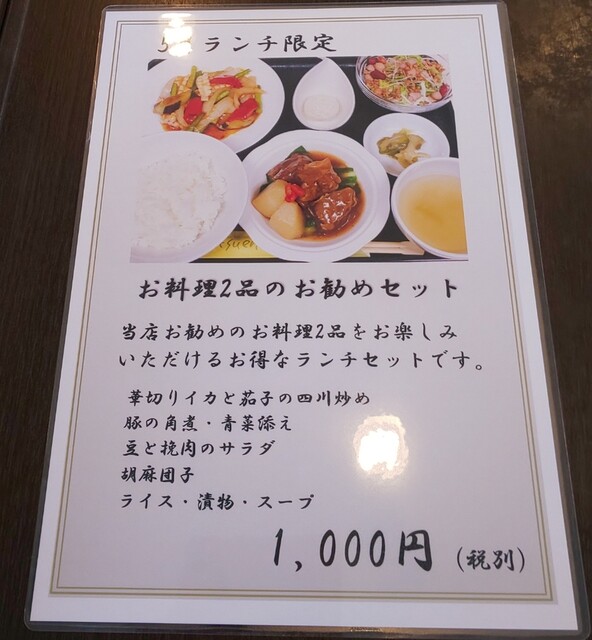 ランチ限定
お料理2品のお勧めセット
当店お勧めのお料理2品をお楽しみ
いただけるお得なランチセットです。
華切りイカと茄子の四川炒め
豚の角煮・青菜添え
豆と挽肉のサラダ
胡麻団子
ライス・漬物・スープ
1,000円 (税別)